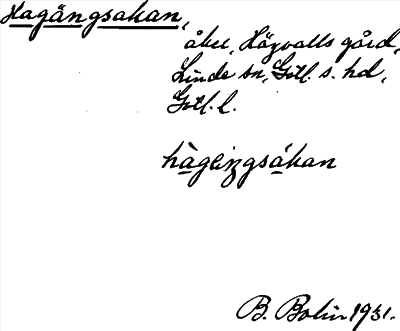 Hagängsakan,
åker, Högvalls gård,
Linde sn, Gotl. s. hd,
Gotl. l.
hàgeingsákan
B. Bolin 1931.